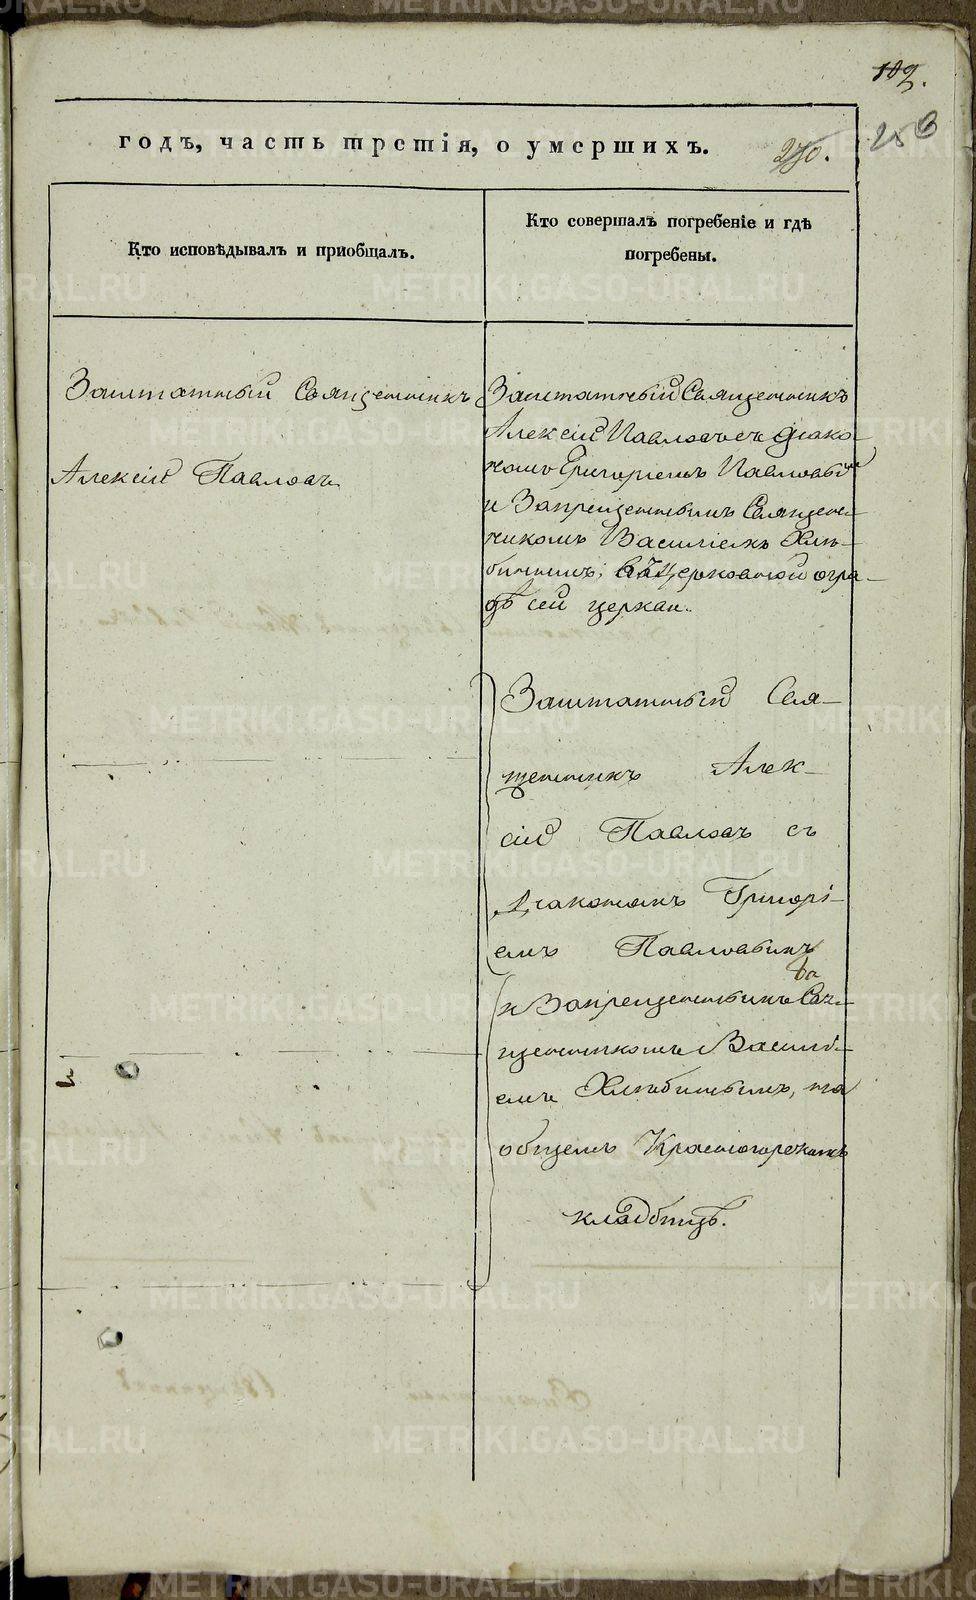 102.
253
годъ, часть третія, о умершихъ.
270.
Кто исповѣдывалъ и пріобщалъ.
Кто совершалъ погребеніе и гдѣ
погребены.
Заштатный Священникъ
Алексій Павловъ
Заштатный Священникъ
Алексій Павловъ съ Діако-
номъ Григоріемъ Павловым
и Запрещеннымъ Священ-
никомъ Василіемъ Хлю-
бинымъ, въ Церковной огра-
дѣ сей церкви.
Заштатный Свя-
щенникъ Алек-
сій Павловъ съ
Діакономъ Григорі-
емъ Павловымъ
и Запрещеннымъ Свя-
щенникомъ Василі-
емъ Хлюбинымъ, на
общемъ Красногорскомъ
кладбищѣ.
METRIKI.GASO-URAL.RU